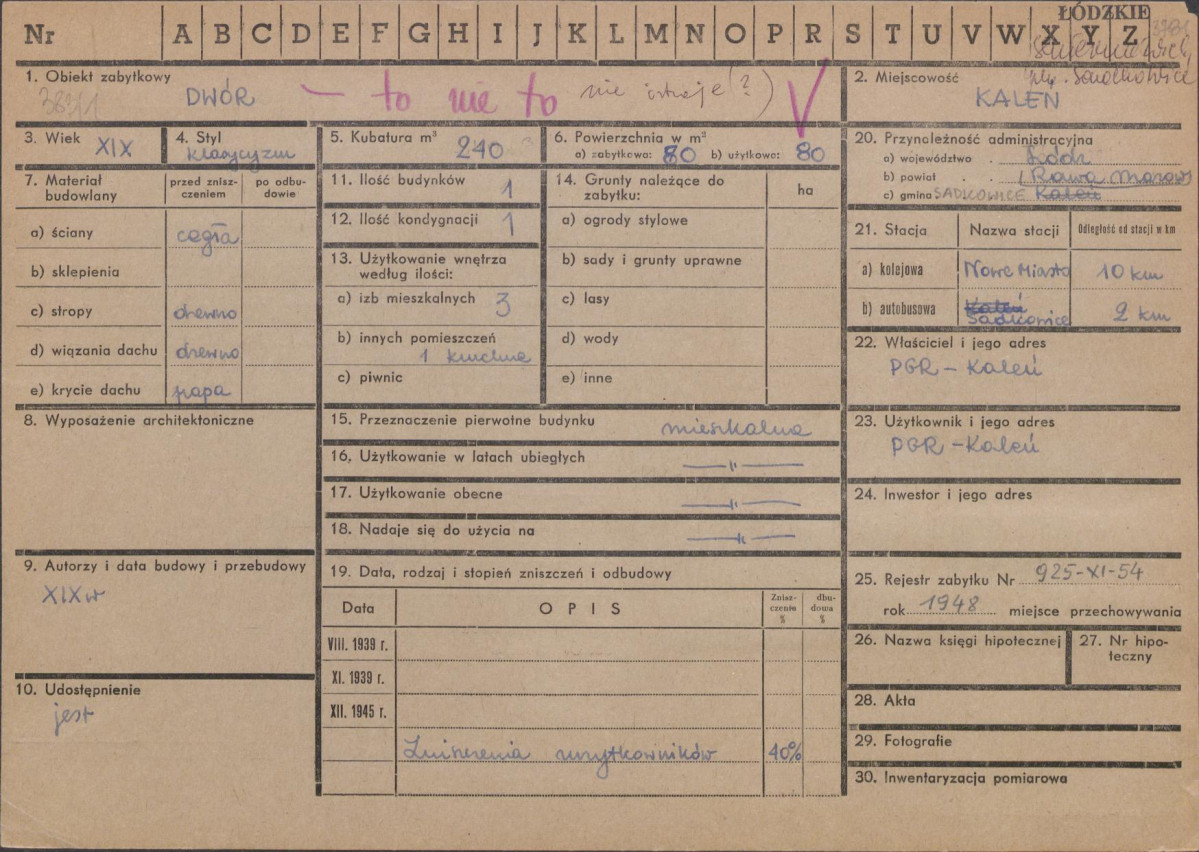 Nr A B C D E F G H I J K L M N O P R S T U V W X Y Z
ŁÓDZKIE
3781
1. Obiekt zabytkowy
DWÓR — to nie to nie istnieje (?)
2. Miejscowość
KALEŃ
3. Wiek XIX
4. Styl klasycyzm
5. Kubatura m³ 240
6. Powierzchnia w m²
a) zabytkowa: 80 b) użytkowa: 80
7. Materiał budowlany
przed zniszczeniem
po odbudowie
a) ściany cegła
b) sklepienia
c) stropy drewno
d) wiązania dachu drewno
e) krycie dachu papa
8. Wyposażenie architektoniczne
9. Autorzy i data budowy i przebudowy
XIX w
10. Udostępnienie
jest
11. Ilość budynków 1
12. Ilość kondygnacji 1
13. Użytkowanie wnętrza
według ilości:
a) izb mieszkalnych 3
b) innych pomieszczeń
1 kuchnia
c) piwnic
14. Grunty należące do
zabytku:
ha
a) ogrody stylowe
b) sady i grunty uprawne
c) lasy
d) wody
e) inne
15. Przeznaczenie pierwotne budynku mieszkalne
16. Użytkowanie w latach ubiegłych —"—
17. Użytkowanie obecne —"—
18. Nadaje się do użycia na —"—
19. Data, rodzaj i stopień zniszczeń i odbudowy
Data
OPIS
Zniszczenie %
dbudowa %
VIII. 1939 r.
XI. 1939 r.
XII. 1945 r.
Zniszczenia użytkowników 40%
20. Przynależność administracyjna
a) województwo . Łódź
b) powiat . . Rawa Mazow
c) gmina SADKOWICE Kaleń
21. Stacja
Nazwa stacji
Odległość od stacji w km
a) kolejowa Nowe Miasto 10 km
b) autobusowa Kaleń Sadkowice 2 km
22. Właściciel i jego adres
PGR – Kaleń
23. Użytkownik i jego adres
PGR – Kaleń
24. Inwestor i jego adres
25. Rejestr zabytku Nr 925-XI-54
rok 1948 miejsce przechowywania
26. Nazwa księgi hipotecznej
27. Nr hipoteczny
28. Akta
29. Fotografie
30. Inwentaryzacja pomiarowa